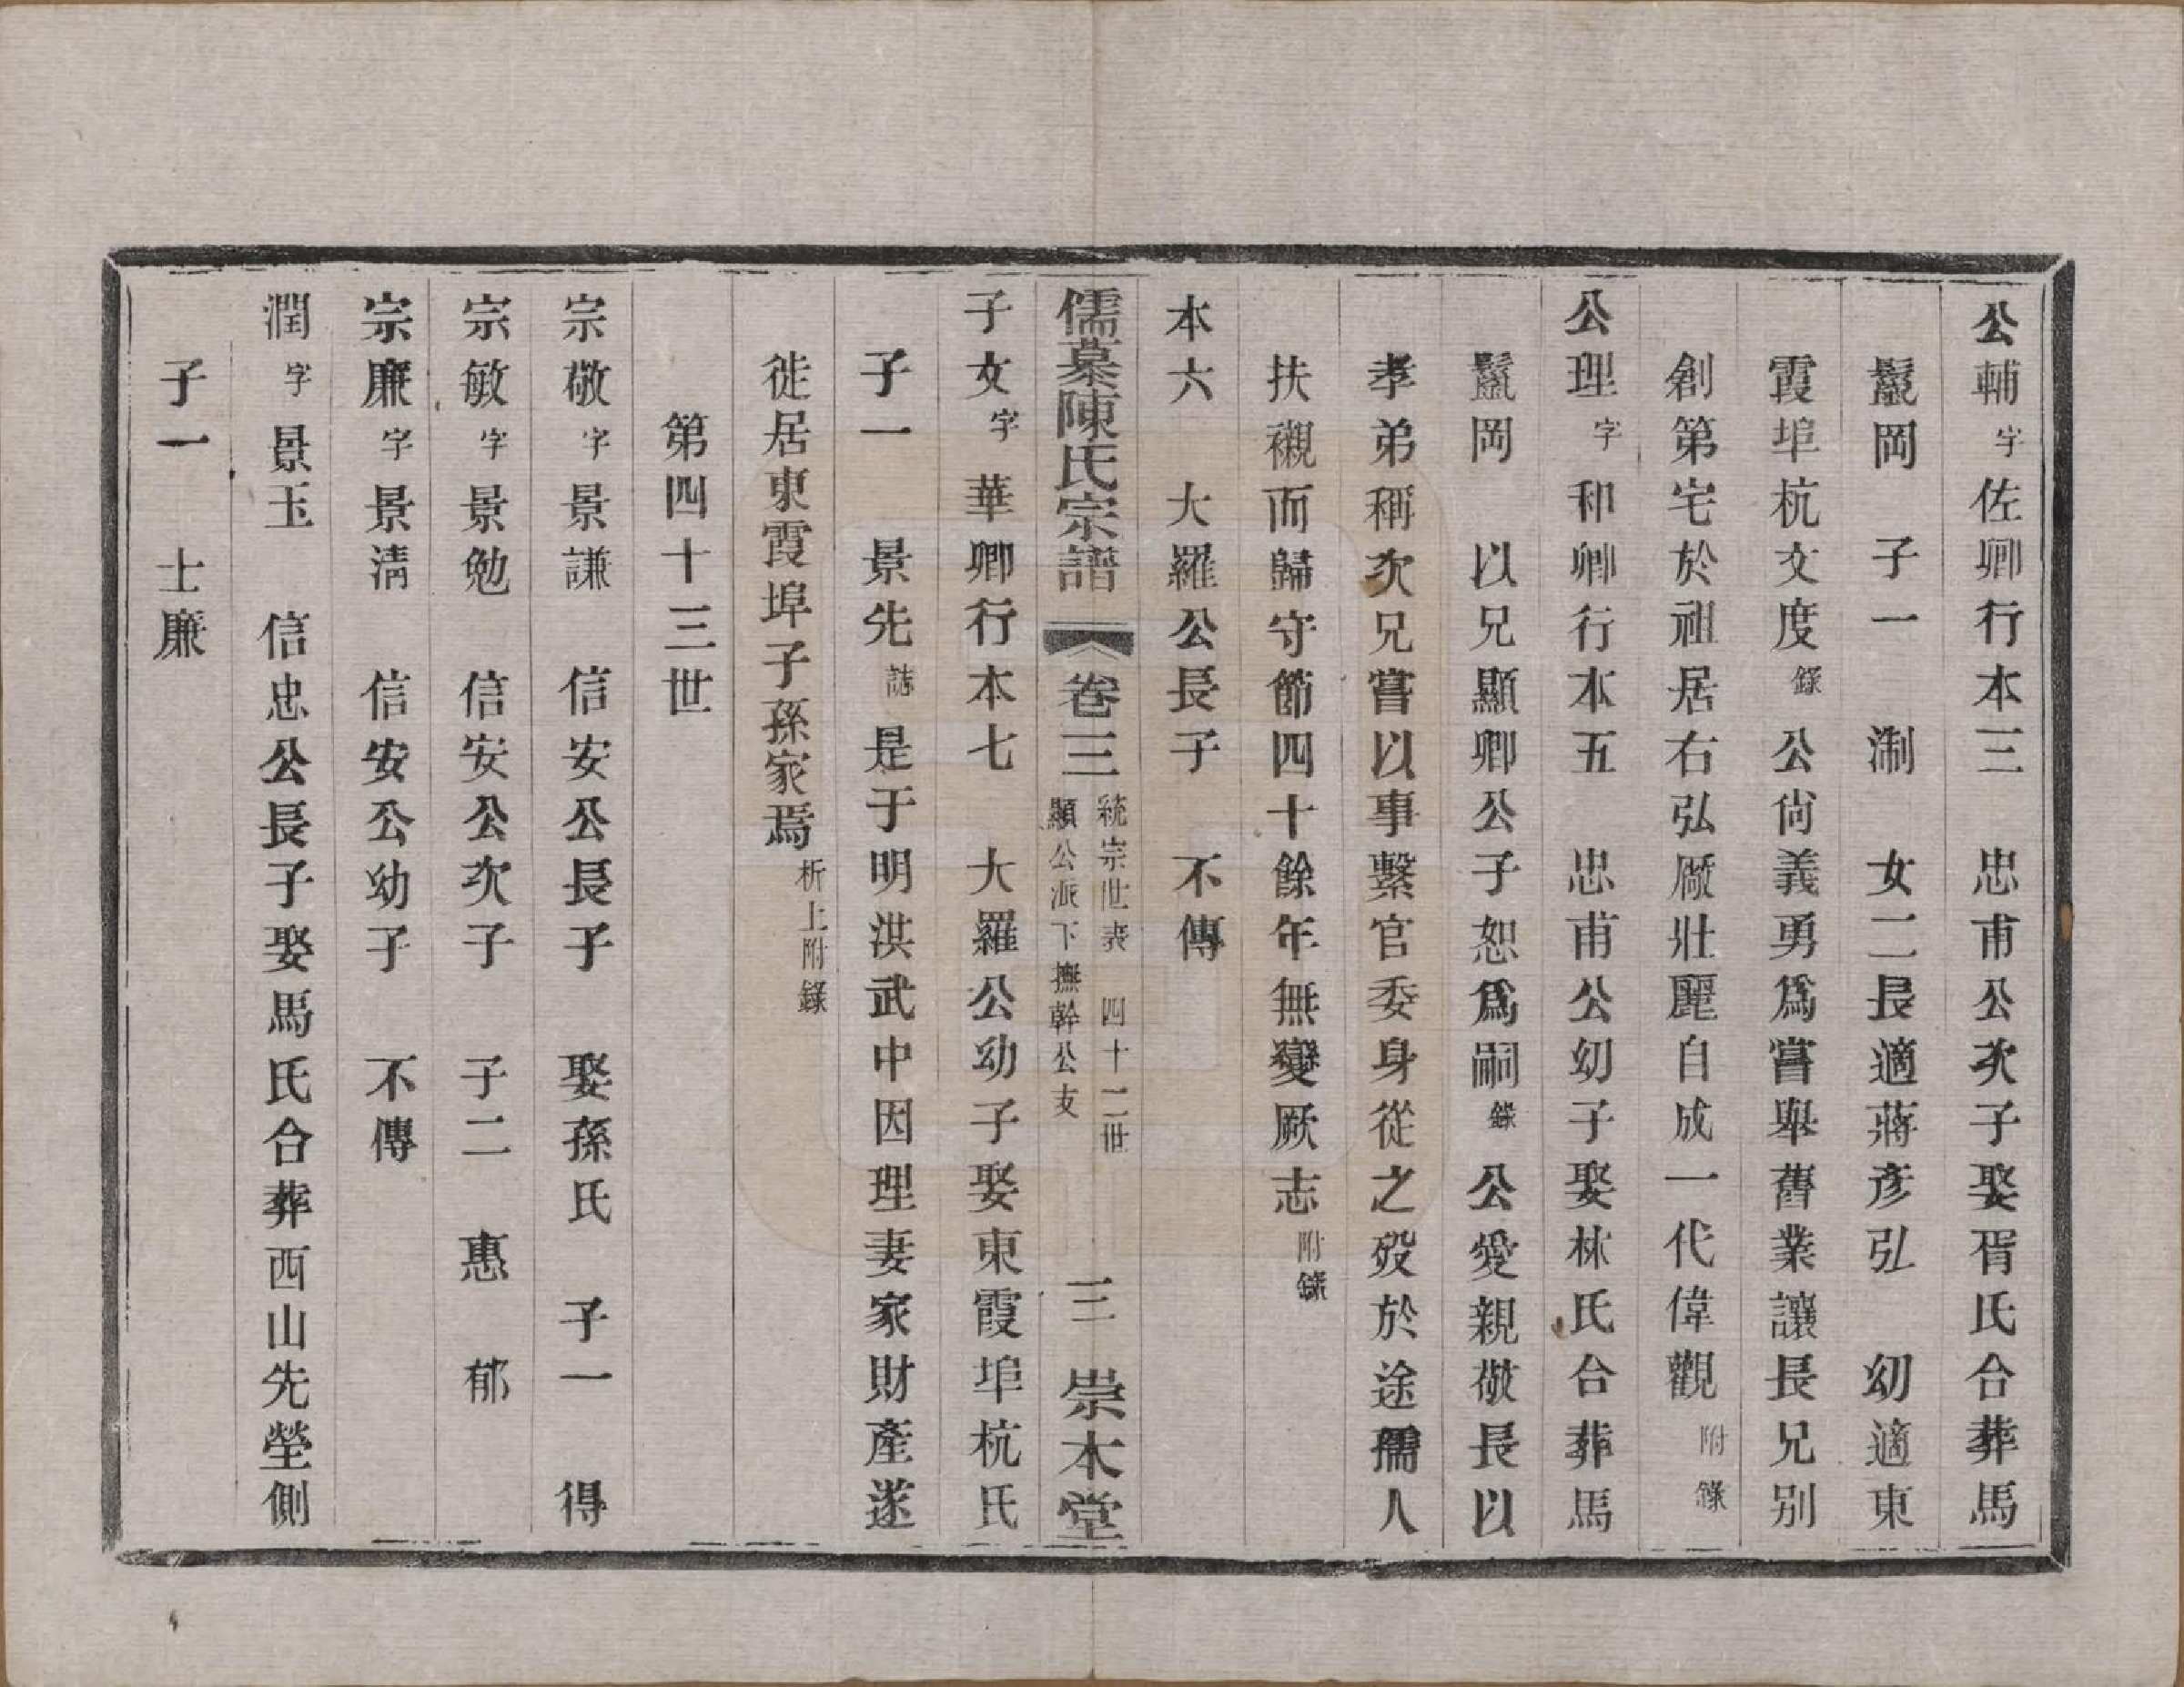 公輔字佐卿行本三　忠甫公次子娶胥氏合葬馬
鬣岡　子一　淛　女二長適蔣彥弘　幼適東
霞埠杭文度錄　公尙義勇爲嘗舉舊業讓長兄別
創第宅於祖居右弘廠壯麗自成一代偉觀附錄
公理字和卿行本五　忠甫公幼子娶林氏合葬馬
鬣岡　以兄顯卿公子恕爲嗣錄　公愛親敬長以
孝弟稱次兄嘗以事繫官委身從之歿於途孺人
扶櫬而歸守節四十餘年無變厥志附錄
本六　大羅公長子　不傳
儒慕陳氏宗譜　卷三　統宗世表　四十二世　顯公派下撫幹公支　三　崇本堂
子文字　華卿行本七　大羅公幼子娶東霞埠杭氏
子一　景先誌　是于明洪武中因理妻家財產遂
徙居東霞埠子孫家焉析上附錄
第四十三世
宗敬字景謙　信安公長子　娶孫氏　子一　得
宗敏字景勉　信安公次子　子二　惠　郁
宗廉字景淸　信安公幼子　不傳
潤字景玉　信忠公長子娶馬氏合葬西山先塋側
子一　士廉